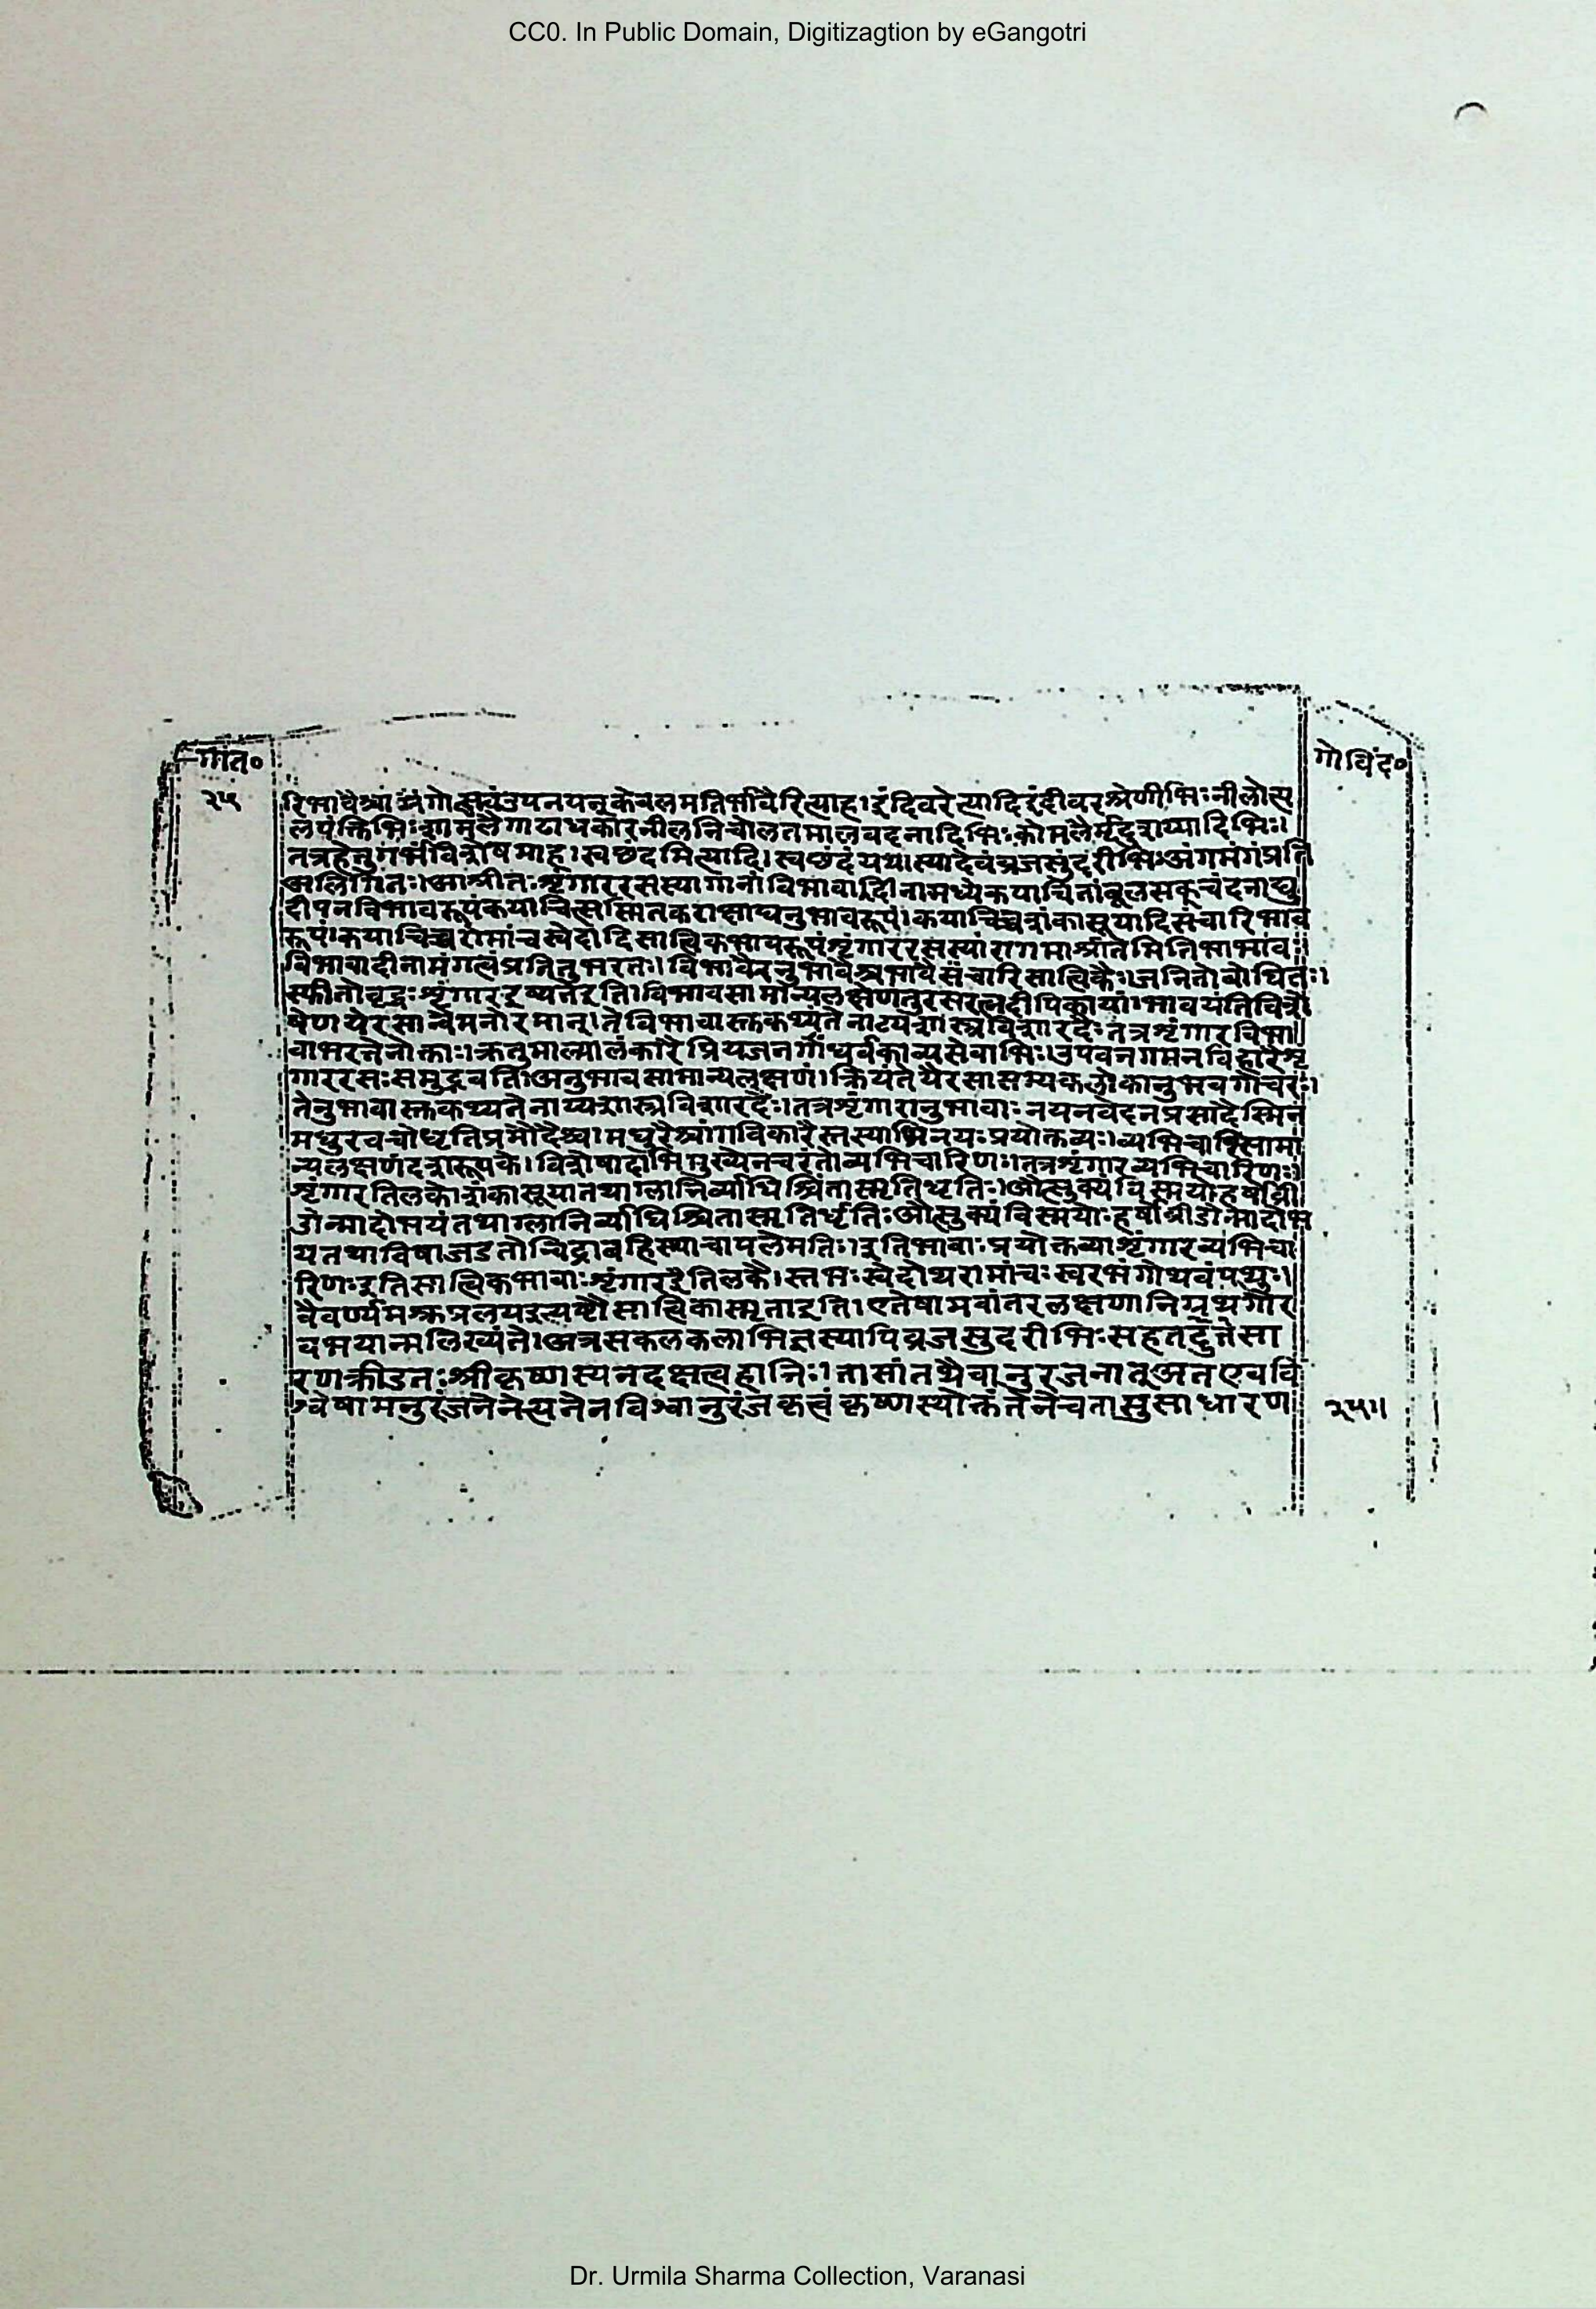 CC0. In Public Domain, Digitizagtion by eGangotri
गीत०
गोविंद०
२५
रिभावैश्चां उपनयन्न केवलमतिर्भावैरित्याह।इंदिवरेत्यादिइंदीवरश्रेणीभिःनीलोत्प
लपंक्तिभिःश्यामलैगाढाधकारनीलनिचोलतमालवदनादिभिःकोमलैर्मृदुशय्यादिभिः।
तत्रहेतुगर्भविशेषमाह।स्वछदमित्यादि।स्वछंदंयथास्यादेवंव्रजसुंदरीभिःअंगमंगंप्रति
अलिंगितः।आश्रीतःशृंगाररसस्यागानांविभावादिनामध्येकयाचित्तांबूलसकूचंदनाद्यु
दीपनविभावरूपंकयाचित्सस्मितकटाक्षाद्यनुभावरूपं।कयाचिच्चशंकासूयादिसंचारिभाव
रूपं।कयाचिच्चरोमांचस्वेदादिसात्विकभावरूपंशृंगाररसस्यांगमाश्रीतमितिभावः॥
विभावादीनामंगत्वंप्रतितुभरतः।विभावैरनुभावैश्चभावैसंचारिसात्विकैः।जनितोबोधितः।
स्फीतोवृद्धःशृंगारइष्यतेइति।विभावसामान्यलक्षणंतुरसरत्नदीपिकायां।भावयंतिविशे
षेणयेरसान्वैमनोरमान्।तेविभावास्तकथ्यंतेनाट्यशास्त्रविशारदैःतत्रशृंगारविभा॥
वाभरतेनोक्ताः।ऋतुमाल्यालंकारैप्रियजनगांधर्वकाव्यसेवाभिः।उपवनगमनविहारैशृ
गाररसःसमुद्भवति।अनुभावसामान्यलक्षणं।क्रियंतेयैरसासम्यकलोकानुभवगोचरः।
तेनुभावास्तकथ्यतेनाय्यशास्त्रविशारदैः।तत्रशृंगारानुभावाःनयनवदनप्रसादैस्मित
मधुरवचोधृतिप्रमोदैश्च।मधुरैश्चांगविकारैस्तस्याभिनयःप्रयोक्तव्यः।व्यभिचारिसामा
न्यलक्षणंदशरूपके।विशेषादाभिमुख्येनचरंतोव्यभिचारिणः।तत्रशृंगारव्यभिचारिणः॥
शृंगारतिलकेशंकासूयातथाग्लानिर्व्याधिश्चिंतास्मृतिधृतिः।औत्सुक्यंविस्मयोहर्षोव्री
डोन्मादोभयंतथाग्लानिर्व्याधिश्चितास्मृतिर्धृतिःऔत्सुक्यंविस्मयोःहर्षोव्रीडोन्मादोभ
यतथाविषाजडतोन्चिद्राबहिस्थाचापलैमतिः।इतिभावाःप्रयोक्तव्याशृंगारव्यंभिचा
रिणःइतिसात्विकभावाःशृंगारइैतिलकै।स्तभःस्वेदोथरामांचःस्वरभंगोथवंपथुः।
वैवर्ण्यमश्रुप्रलयइत्यष्टौसात्विकास्मृताइति।एतेषामवांतरलक्षणानिग्रंथगौर
वभयान्मलिख्यंते।अत्रसकलकलाभिज्ञस्यापिव्रजसुदरीभिःसहतर्दुत्तेसा
रणक्रीडतःश्रीकृष्णस्यनदक्षत्वहानिः।तासांतथैवानुरजनातूअतएववि
श्वेषामनुरंजनेनेत्यनेनविश्वानुरंजकृत्वंकृष्णस्योक्तंतेनैचतासुसाधारण
२५॥
Dr. Urmila Sharma Collection, Varanasi